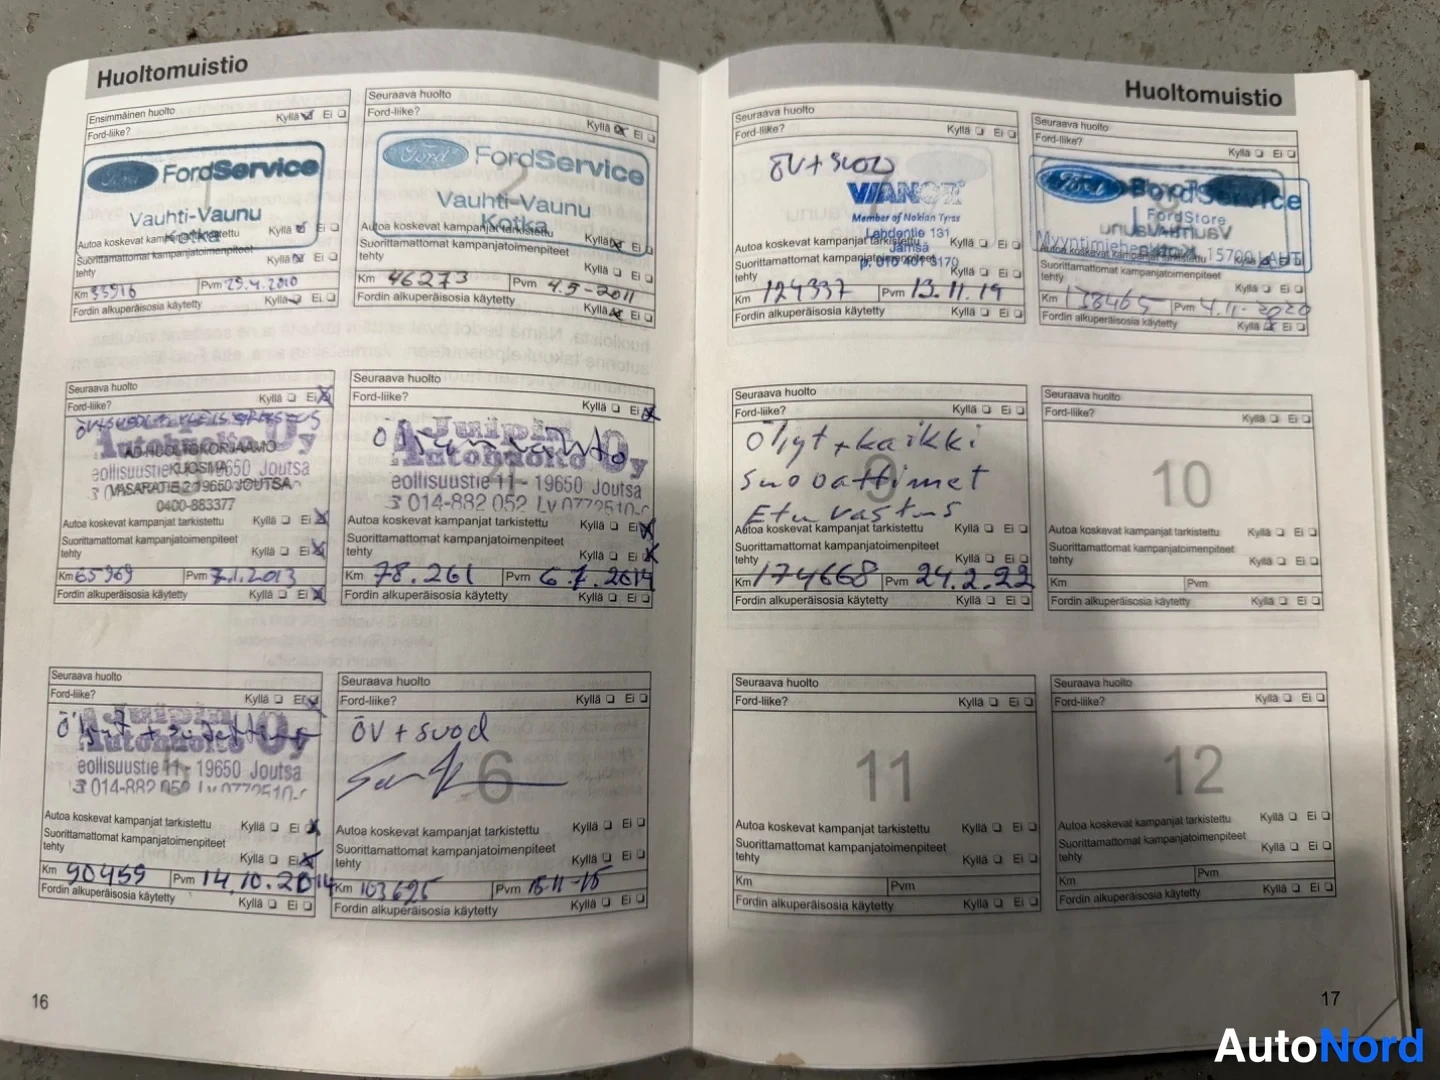 Huoltomuistio
Ensimmäinen huolto
Ford-liike?
Kyllä Ei
Ford FordService
Vauhti-Vaunu
Kotka
Autoa koskevat kampanjat tarkistettu
Kyllä Ei
Suorittamattomat kampanjatoimenpiteet
tehty
Kyllä Ei
Km 33916 Pvm 29.4.2010
Fordin alkuperäisosia käytetty
Kyllä Ei
Seuraava huolto
Ford-liike?
Kyllä Ei
Ford FordService
2
Vauhti-Vaunu
Kotka
Autoa koskevat kampanjat tarkistettu
Kyllä Ei
Suorittamattomat kampanjatoimenpiteet
tehty
Kyllä Ei
Km 46273 Pvm 4.5-2011
Fordin alkuperäisosia käytetty
Kyllä Ei
Seuraava huolto
Ford-liike?
Kyllä Ei
Autohuolto Oy
AD-HUOLTOKORJAAMO
KUOSMA
eollisuustie 19650 Joutsa
VASARATIE 2 19650 JOUTSA
0400-883377
Autoa koskevat kampanjat tarkistettu
Kyllä Ei
Suorittamattomat kampanjatoimenpiteet
tehty
Kyllä Ei
Km 65969 Pvm 7.1.2013
Fordin alkuperäisosia käytetty
Kyllä Ei
Seuraava huolto
Ford-liike?
Kyllä Ei
Autohuolto Oy
eollisuustie 11 - 19650 Joutsa
014-882 052
Autoa koskevat kampanjat tarkistettu
Kyllä Ei
Suorittamattomat kampanjatoimenpiteet
tehty
Kyllä Ei
Km 78.261 Pvm 6.7.2014
Fordin alkuperäisosia käytetty
Kyllä Ei
Seuraava huolto
Ford-liike?
Kyllä Ei
Autohuolto Oy
eollisuustie 11 - 19650 Joutsa
014-882 052
Autoa koskevat kampanjat tarkistettu
Kyllä Ei
Suorittamattomat kampanjatoimenpiteet
tehty
Kyllä Ei
Km 90459 Pvm 14.10.2014
Fordin alkuperäisosia käytetty
Kyllä Ei
Seuraava huolto
Ford-liike?
Kyllä Ei
ÖV + suod
6
Autoa koskevat kampanjat tarkistettu
Kyllä Ei
Suorittamattomat kampanjatoimenpiteet
tehty
Kyllä Ei
Km 103695 Pvm
Fordin alkuperäisosia käytetty
Kyllä Ei
16
Huoltomuistio
Seuraava huolto
Ford-liike?
Kyllä Ei
ÖV + suod
VIANOR
Member of Nokian Tyres
Lahdentie 131
Jämsä
p. 010 401 3170
Autoa koskevat kampanjat tarkistettu
Kyllä Ei
Suorittamattomat kampanjatoimenpiteet
tehty
Kyllä Ei
Km 124337 Pvm 13.11.19
Fordin alkuperäisosia käytetty
Kyllä Ei
Seuraava huolto
Ford-liike?
Kyllä Ei
Ford FordService
FordStore
Autoa koskevat kampanjat tarkistettu
Kyllä Ei
Suorittamattomat kampanjatoimenpiteet
tehty
Kyllä Ei
Km 138465 Pvm 4.11-2020
Fordin alkuperäisosia käytetty
Kyllä Ei
Seuraava huolto
Ford-liike?
Kyllä Ei
Öljyt + kaikki
suodattimet
Etuvastus
9
Autoa koskevat kampanjat tarkistettu
Kyllä Ei
Suorittamattomat kampanjatoimenpiteet
tehty
Kyllä Ei
Km 174668 Pvm 24.2.22
Fordin alkuperäisosia käytetty
Kyllä Ei
Seuraava huolto
Ford-liike?
Kyllä Ei
10
Autoa koskevat kampanjat tarkistettu
Kyllä Ei
Suorittamattomat kampanjatoimenpiteet
tehty
Kyllä Ei
Km Pvm
Fordin alkuperäisosia käytetty
Kyllä Ei
Seuraava huolto
Ford-liike?
Kyllä Ei
11
Autoa koskevat kampanjat tarkistettu
Kyllä Ei
Suorittamattomat kampanjatoimenpiteet
tehty
Kyllä Ei
Km Pvm
Fordin alkuperäisosia käytetty
Kyllä Ei
Seuraava huolto
Ford-liike?
Kyllä Ei
12
Autoa koskevat kampanjat tarkistettu
Kyllä Ei
Suorittamattomat kampanjatoimenpiteet
tehty
Kyllä Ei
Km Pvm
Fordin alkuperäisosia käytetty
Kyllä Ei
17
AutoNord